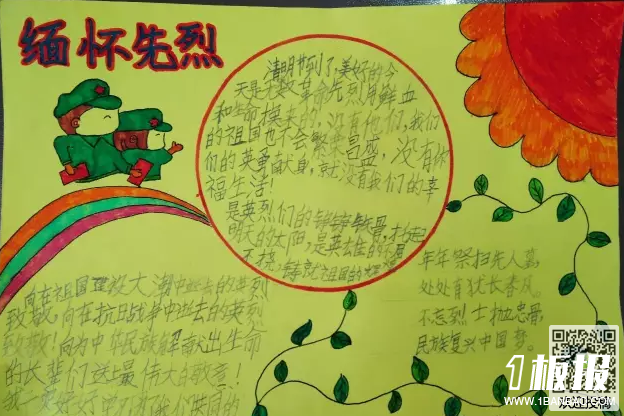 缅怀先烈
清明节到了,美好的今
天是无数革命先烈用鲜血
和生命换来的,没有他们,我们
的祖国也不会繁荣昌盛,没有他
们的英勇献身,就没有我们的幸
福生活!
是英烈们的铮铮铁骨,才撑起
明天的太阳,是英雄的不屈
不挠
祖国的
向在祖国解放大潮中逝去的英烈
致敬,向在抗日战争中逝去的英烈
致敬!向为中华民族解放献出生命
的长辈们致上最伟大的敬意!
我
年年祭扫先人墓,
处处有犹长春风。
不忘烈士抛忠骨,
民族复兴中国梦。
1板报
WWW.1BANBAO.COM